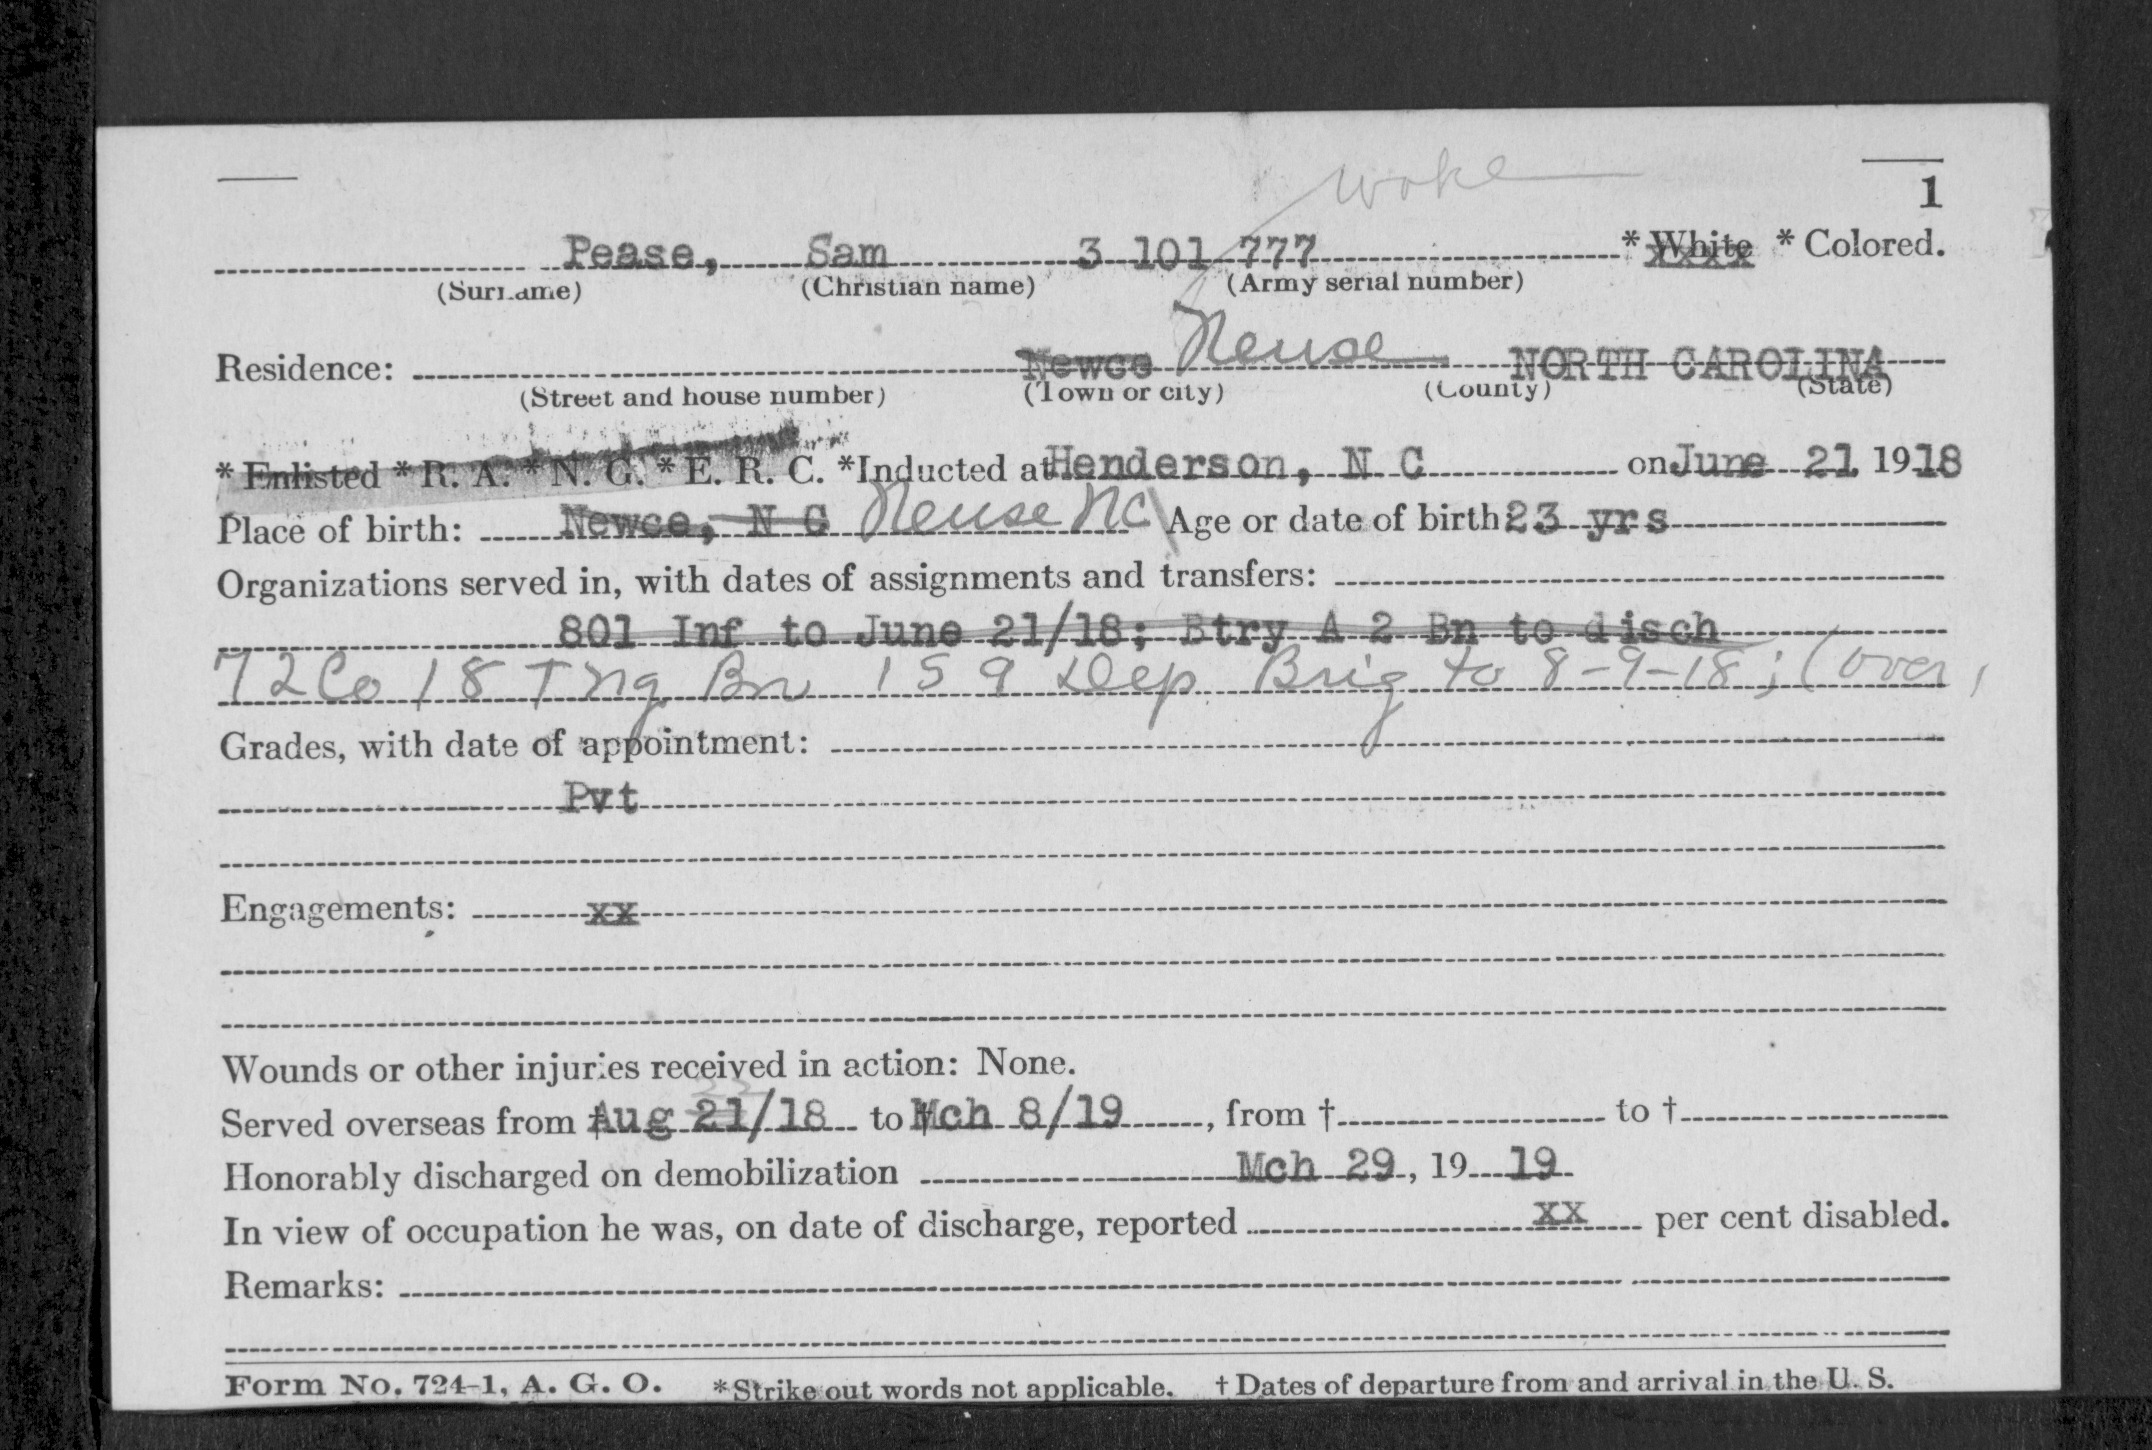 Wake
1
Pease, Sam 3 101 777 * White * Colored.
(Surname) (Christian name) (Army serial number)
Residence: Newce Neuse NORTH CAROLINA
(Street and house number) (Town or city) (County) (State)
* Enlisted * R. A. * N. G. * E. R. C. *Inducted at Henderson, N C on June 21 1918
Place of birth: Newce, N C Neuse NC Age or date of birth: 23 yrs
Organizations served in, with dates of assignments and transfers:
801 Inf to June 21/18; Btry A 2 Bn to disch
72 Co 18 Tng Bn 159 Dep Brig to 8-9-18; (over)
Grades, with date of appointment:
Pvt
Engagements: xx
Wounds or other injuries received in action: None.
23
Served overseas from † Aug 21/18 to † Mch 8/19, from † to †
Honorably discharged on demobilization Mch 29, 19 19
In view of occupation he was, on date of discharge, reported xx per cent disabled.
Remarks:
Form No. 724-1, A. G. O. *Strike out words not applicable. † Dates of departure from and arrival in the U. S.